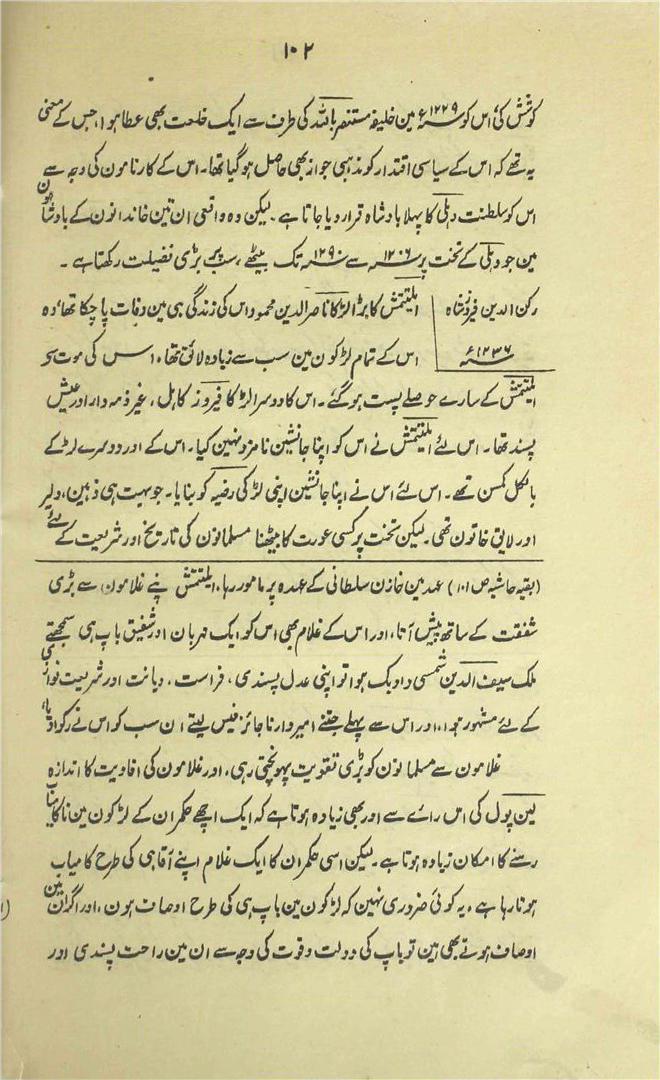 ۱۰۲
کوشش کی اس کو ۱۲۲۹ء مین خلیفہ مستنصر باللہ کی طرف سے ایک خلعت بھی عطا ہوا، جس کے معنی
یہ تھے کہ اس کے سیاسی اقتدار کو مذہبی جواز بھی حاصل ہو گیا تھا۔ اس کے کارنامون کی وجہ سے
اس کو سلطنت دہلی کا پہلا بادشاہ قرار دیا جاتا ہے۔ لیکن وہ واقعی ان تین خاندانون کے بادشاہون
مین جو دہلی کے تخت پر ۱۲۰۶ء سے ۱۲۹۰ء تک بیٹھے، سب پر بڑی فضیلت رکھتا ہے۔
رکن الدین فیروز شاہ
۱۲۳۶ء
ایلتتمش کا بڑا لڑکا ناصر الدین محمود اس کی زندگی ہی مین وفات پا چکا تھا، وہ
اس کے تمام لڑکون مین سب سے زیادہ لائق تھا، اس کی موت سے
ایلتتمش کے سارے حوصلے پست ہو گئے۔ اس کا دوسرا لڑکا فیروز کاہل، غیر ذمہ دار اور عیش
پسند تھا۔ اس لئے ایلتتمش نے اس کو اپنا جانشین نامزد نہین کیا۔ اس کے اور دوسرے لڑکے
بالکل کمسن تھے۔ اس لئے اس نے اپنا جانشین اپنی لڑکی رضیہ کو بنایا۔ جو بہت ہی ذہین، دلیر
اور لایق خاتون تھی۔ لیکن تخت پر کسی عورت کا بیٹھنا مسلمانون کی تاریخ اور شریعت کے لئے
(بقیہ حاشیہ ص ۱۰۱) عہد مین خازن سلطانی کے عہدہ پر مامور رہا، ایلتتمش اپنے غلامون سے بڑی
شفقت کے ساتھ پیش آتا، اور اس کے غلام بھی اس کو ایک مہربان اور شفیق باپ ہی سمجھتے
ملک سیف الدین شمسی دادبک ہوا تو اپنی عدل پسندی، فراست، دیانت اور شریعت نوازی
کے لئے مشہور ہوا، اور اس سے پہلے جتنے امیر دار ناجائز فیس لیتے ان سب کو اس نے رکوا دیا،
غلامون سے مسلمانون کو بڑی تقویت پہونچتی رہی، اور غلامون کی افادیت کا اندازہ
لین پول کی اس رائے سے اور بھی زیادہ ہوتا ہے کہ ایک اچھے حکمران کے لڑکون مین ناکامیاب
رہنے کا امکان زیادہ ہوتا ہے۔ لیکن اسی حکمران کا ایک غلام اپنے آقا ہی کی طرح کامیاب
ہوتا رہا ہے، یہ کوئی ضروری نہین کہ لڑکون مین باپ ہی کی طرح اوصاف ہون، اور اگر ان مین
اوصاف ہوتے بھی ہین تو باپ کی دولت وقوت کی وجہ سے ان مین راحت پسندی اور